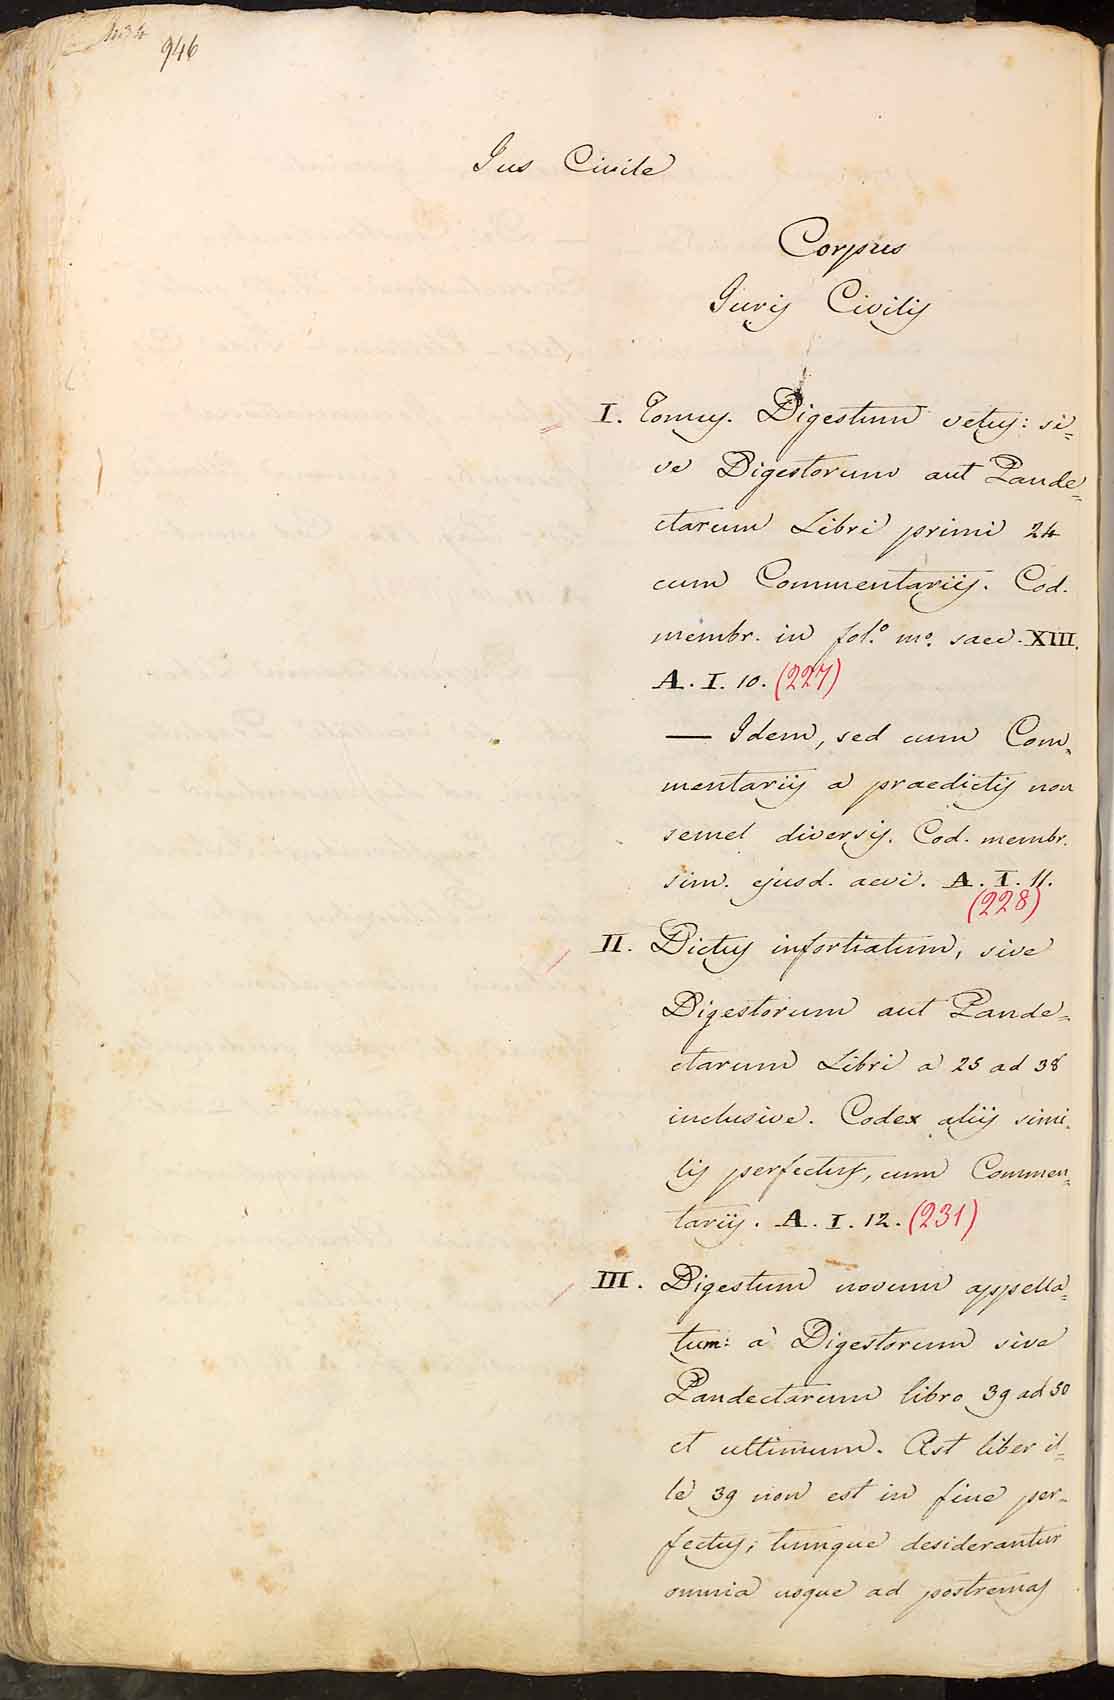 946
Jus Civile
Corpus
Juris Civilis
I. Tomus. Digestum vetus: si=
ve Digestorum aut Pande=
ctarum Libri primi 24
cum Commentariis. Cod.
membr. in fol.º mº. saec. XIII.
A. I. 10. (227)
— Idem, sed cum Com=
mentariis a praedictis non
semel diversis. Cod. membr.
sim. ejusd. aevi. A. I. 11.
(228)
II. Dictus infortiatum, sive
Digestorum aut Pande=
ctarum Libri a 25 ad 38
inclusive. Codex aliis simi=
lis perfectus, cum Commen=
tariis. A. I. 12. (231)
III. Digestum novum appella=
tum: à Digestorum sive
Pandectarum libro 39 ad 50
et ultimum. Ast liber il=
le 39 non est in fine per=
fectus; tumque desiderantur
omnia usque ad postremas